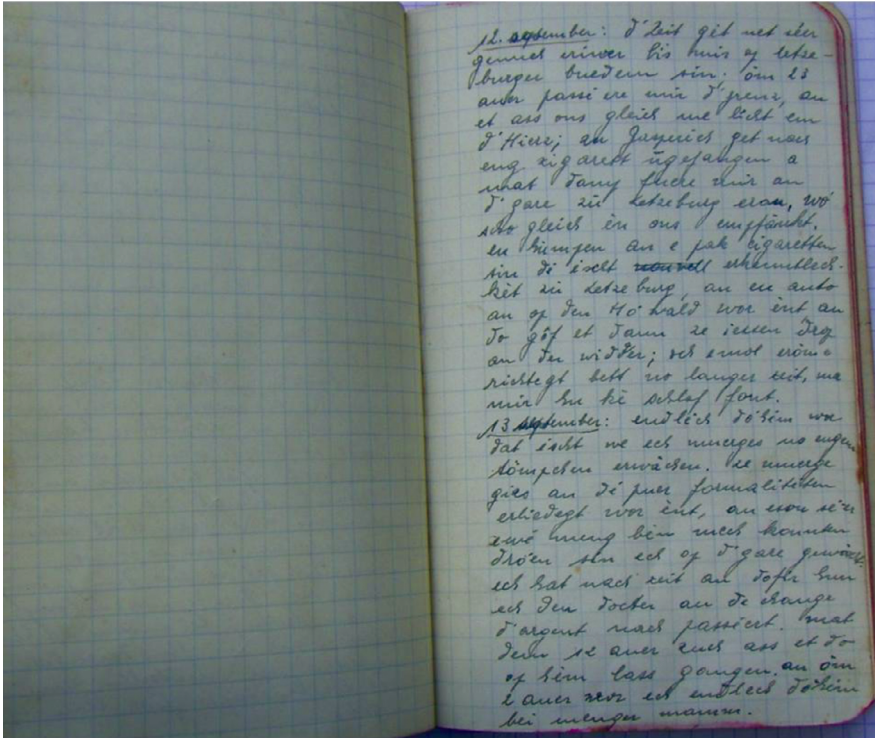 12. september: d'Zeit gët net séer
genuch eriwer bis mir op letze-
burger buedem sin; öm 23
auer passéere mir d'grenz, an
et ass ons gleich me licht em
d'Hierz; zu Gasperich gët nach
eng zigarett ugefangen a
mat damp fuere mir an
d'gare zu Letzeburg eran, wo
scho gleich ên ons empfänkt.
en humpen an e pak cigaretten
sin di ischt erkenntlech-
kêt zu Letzeburg, an en auto
an op den Ho'wald wor ênt an
do gôf et dann ze iessen drop
an der widder; och emol eröm e
richtegt bett no langer zeit, ma
mir hu kê schlof font.
13 september: endlech dohêm wor
dat ischt we ech muerges no engem
tömpchen erwächen. ze muerge
giess an di puer formalitéten
erliedegt wor ênt, an esou séier
zwé meng bên mech konnten
dróen sin ech op d'gare gewëtzt.
ech hat nach zeit an dofir hun
ech den dokter an de change
d'argent nach passéert. mat
dem 12 auer zuch ass et do
op hêm lass gaangen. an öm
2 auer wor ech endlech dohêm
bei menger mamm.